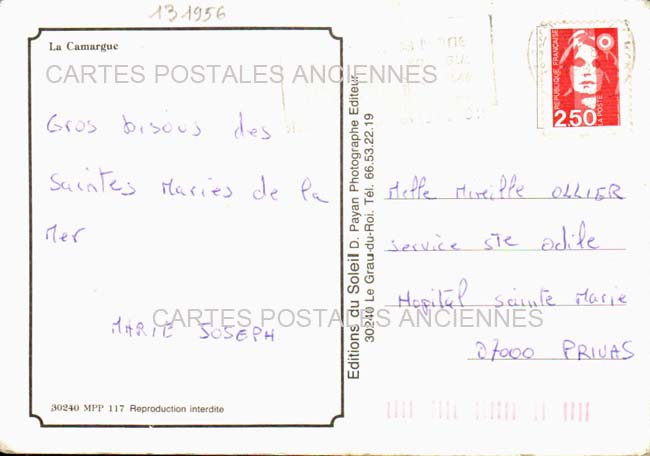 131956
La Camargue
CARTES POSTALES ANCIENNES
Gros bisous des
Saintes Maries de la
Mer
MARIE JOSEPH
30240 MPP 117 Reproduction interdite
Editions du Soleil D. Payan Photographe Editeur
30240 Le Grau-du-Roi. Tél. 66.53.22.19
REPUBLIQUE FRANÇAISE
2,50
LA POSTE
Melle Mireille OLLIER
service ste odile
Hopital Sainte Marie
CARTES POSTALES ANCIENNES
07000 PRIVAS